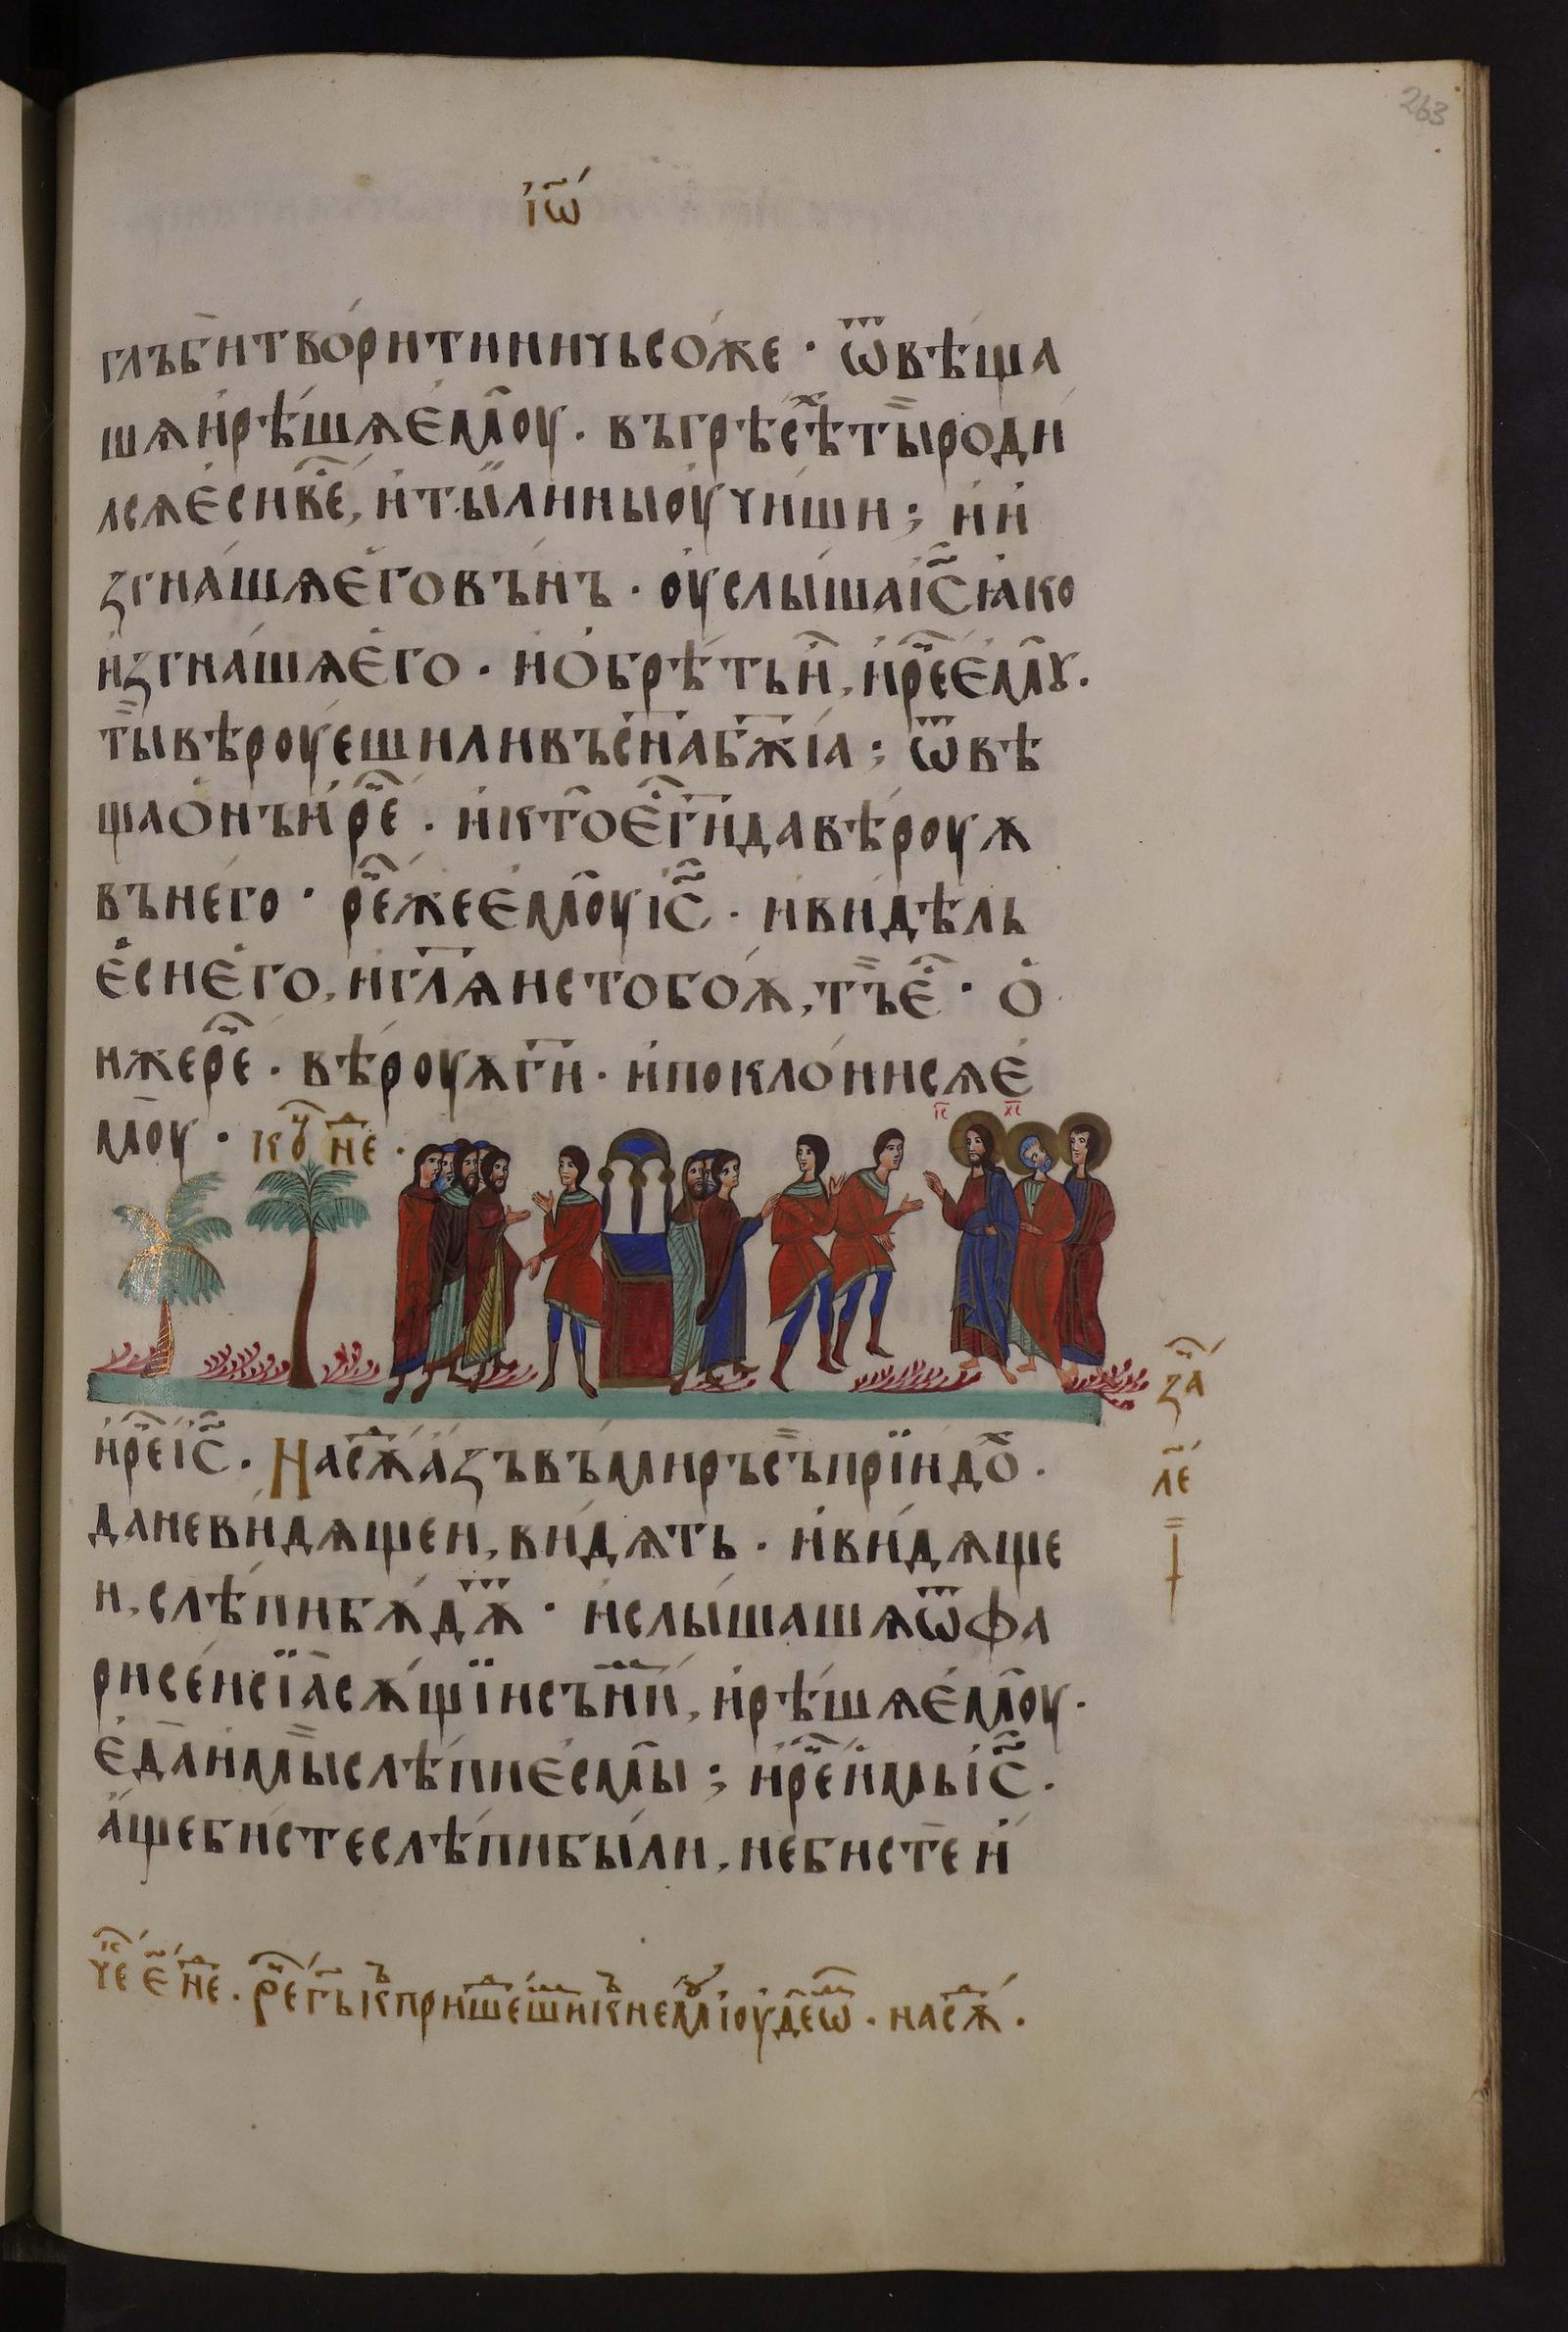 263
і҆ѡ҃
глъб҄итвори́тиничьсо́же · ѿвѣща
шѧи҆рѣ́шѧе҆м҄оу · въгрѣсѣ́хтыроди
лсѧе҆сивь҄се, и҆ты́линыоу҆чи́ши ; и҆и
згна́шѧе҆говъ́нъ · оу҆слы́шаі҆с҃ꙗ҆ко
и҆згна́шѧе҆го · и҆о҆брѣ́тьи҆, и҆рⷱ҇ее҆м҄ꙋ ·
ты̀вѣ́роуешиливъсн҃аб҃жїа ; ѿвѣ
щао҆нъи҆рⷱ҇е · и҆кт҄ое҆г҃идавѣ́роуѫ
въне́го · рⷱ҇ежее҆м҄оуі҆с҃ · и҆ви́дѣль
е҆сие҆го, и҆гл҃ѧистобо́ѫ, тъ̀е҆ · о҆
нжерⷱ҇е · вѣ́роуѫг҃и · и҆покло́нисѧе҆
м҄оу · коⷰ҇ нⷣе ·
і҃с х҃с
и҆рⷱ҇еі҆с҃ · Насѫⷣа҆́зъвъ́миръсъ̀прїидоⷯ ·
даневи́дѧщеи, ви́дѧть · и҆ви́дѧще
и, слѣ́пибѫ́дѫⷮ · и҆слы́шашѧѿфа
рисе́исїа҄сѫ́щїисъни́мⷨ, и҆рѣ́шѧе҆м҄оу ·
е҆да҄и҆мы̀слѣ́пие҆см҄ы ; и҆рⷱ҇еи҆мьі҆с҃ ·
а҆́щеби́стеслѣ́пибы́ли, неби́ст҄еи҆
заⷱ҇
л҃е
чⷭ҇е е҃ нⷣе · рⷱ҇е г҃ь къ пришеⷣшиⷨ къ немꙋ і҆оуⷣ҇еѡⷨ · на сѫⷣ ·